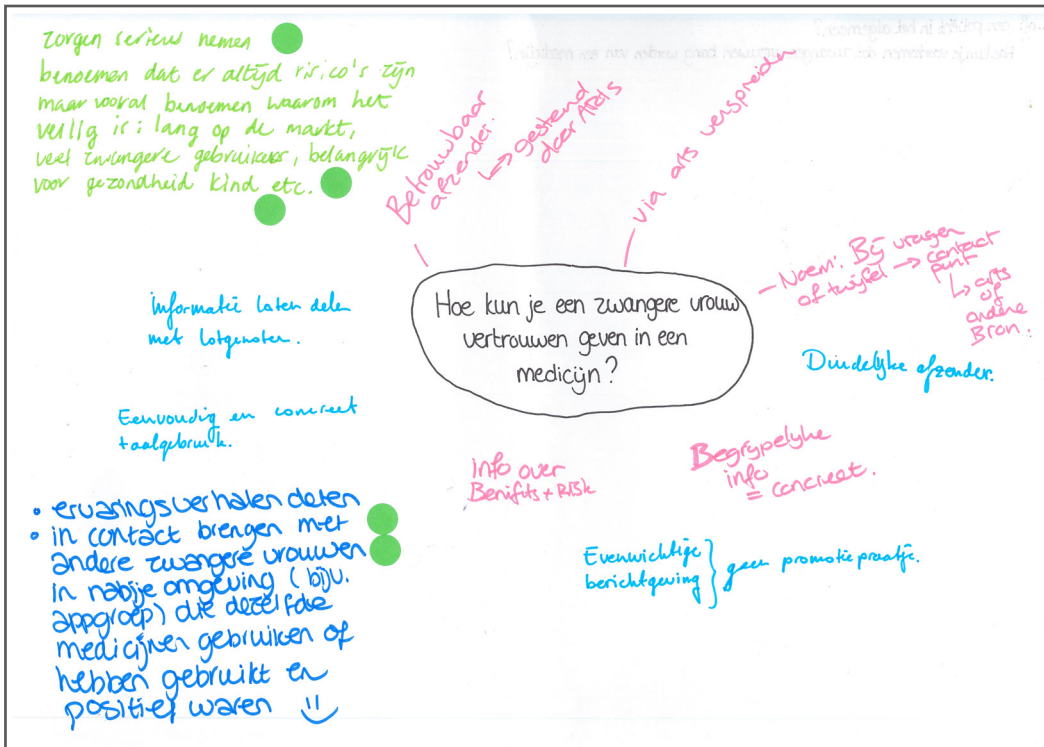 zorgen serieus nemen
benoemen dat er altijd risico's zijn
maar vooral benoemen waarom het
veilig is: lang op de markt,
veel zwangere gebruikers, belangrijk
voor gezondheid kind etc.
Betrouwbaar
afzender.
↳ gesteund
door Arts
via arts verspreiden
Noem: Bij vragen
of twijfel → contact
punt
↳ arts
of
andere
Bron.
Hoe kun je een zwangere vrouw
vertrouwen geven in een
medicijn?
Informatie laten delen
met lotgenoten.
Duidelijke afzender.
Eenvoudig en concreet
taalgebruik.
info over
Benifits + Risk
Begrypelyke
info
= concreet.
• ervaringsverhalen delen
• in contact brengen met
andere zwangere vrouwen
in nabije omgeving (bijv.
appgroep) die dezelfde
medicijnen gebruiken of
hebben gebruikt en
positief waren
Evenwichtige
berichtgeving } geen promotiepraatje.